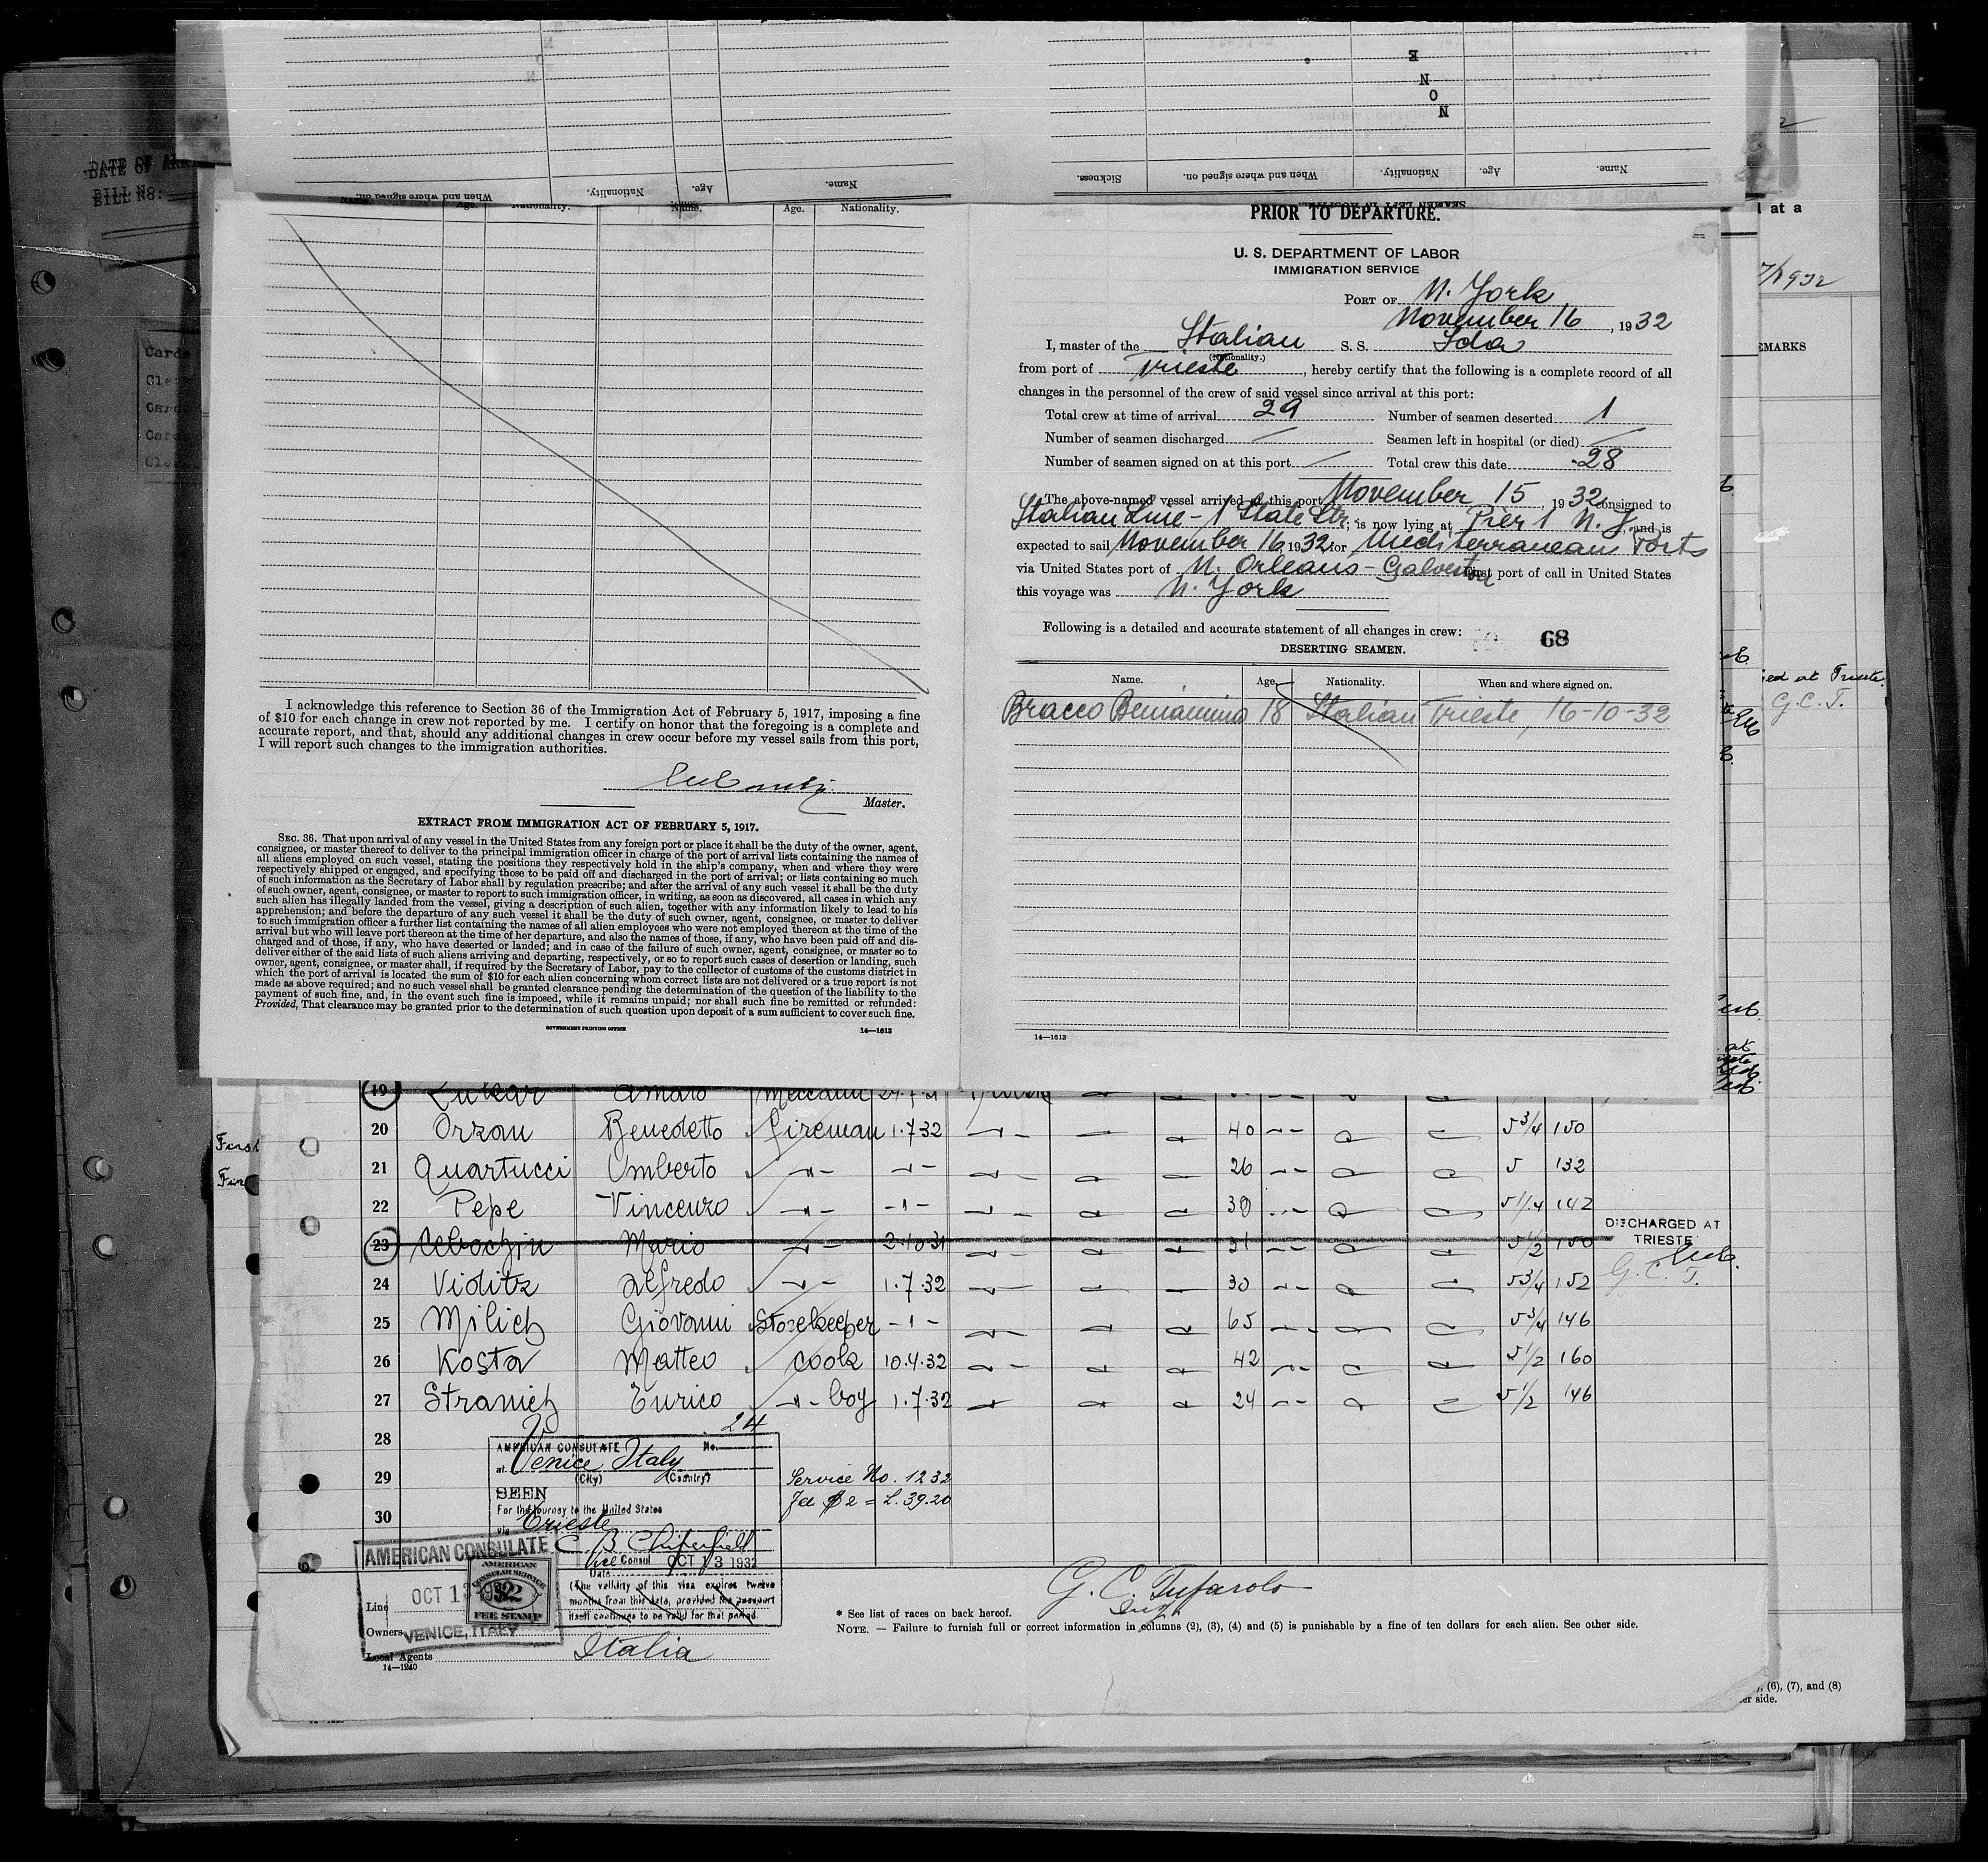 E
N
O
N
Name.
Age.
Nationality.
When and where signed on.
Name.
Age.
Nationality.
When and where signed on.
Sickness.
DATE OF
BILL NO.
Age.
Nationality.
Name.
Age.
Nationality.
I acknowledge this reference to Section 36 of the Immigration Act of February 5, 1917, imposing a fine
of $10 for each change in crew not reported by me. I certify on honor that the foregoing is a complete and
accurate report, and that, should any additional changes in crew occur before my vessel sails from this port,
I will report such changes to the immigration authorities.
Master.
EXTRACT FROM IMMIGRATION ACT OF FEBRUARY 5, 1917.
SEC. 36. That upon arrival of any vessel in the United States from any foreign port or place it shall be the duty of the owner, agent,
consignee, or master thereof to deliver to the principal immigration officer in charge of the port of arrival lists containing the names of
all aliens employed on such vessel, stating the positions they respectively hold in the ship's company, when and where they were
respectively shipped or engaged, and specifying those to be paid off and discharged in the port of arrival; or lists containing so much
of such information as the Secretary of Labor shall by regulation prescribe; and after the arrival of any such vessel it shall be the duty
of such owner, agent, consignee, or master to report to such immigration officer, in writing, as soon as discovered, all cases in which any
such alien has illegally landed from the vessel, giving a description of such alien, together with any information likely to lead to his
apprehension; and before the departure of any such vessel it shall be the duty of such owner, agent, consignee, or master to deliver
to such immigration officer a further list containing the names of all alien employees who were not employed thereon at the time of the
arrival but who will leave port thereon at the time of her departure, and also the names of those, if any, who have been paid off and dis-
charged and of those, if any, who have deserted or landed; and in case of the failure of such owner, agent, consignee, or master so to
deliver either of the said lists of such aliens arriving and departing, respectively, or so to report such cases of desertion or landing, such
owner, agent, consignee, or master shall, if required by the Secretary of Labor, pay to the collector of customs of the customs district in
which the port of arrival is located the sum of $10 for each alien concerning whom correct lists are not delivered or a true report is not
made as above required; and no such vessel shall be granted clearance pending the determination of the question of the liability to the
payment of such fine, and, in the event such fine is imposed, while it remains unpaid; nor shall such fine be remitted or refunded:
Provided, That clearance may be granted prior to the determination of such question upon deposit of a sum sufficient to cover such fine.
GOVERNMENT PRINTING OFFICE 14—1613
PRIOR TO DEPARTURE.
U. S. DEPARTMENT OF LABOR
IMMIGRATION SERVICE
PORT OF N. York
November 16, 1932
I, master of the Italian S. S. Ida
(Nationality.)
from port of Trieste, hereby certify that the following is a complete record of all
changes in the personnel of the crew of said vessel since arrival at this port:
Total crew at time of arrival 29 Number of seamen deserted 1
Number of seamen discharged — Seamen left in hospital (or died) —
Number of seamen signed on at this port — Total crew this date 28
The above-named vessel arrived at this port November 15, 1932 consigned to
Italian Line - 1 State Str.; is now lying at Pier 1 N. J. and is
expected to sail November 16, 1932 for Mediterranean Ports
via United States port of N. Orleans - Galveston First port of call in United States
this voyage was N. York
Following is a detailed and accurate statement of all changes in crew: 68
DESERTING SEAMEN.
Name. Age. Nationality. When and where signed on.
Bracco Beniamino 18 Italian Trieste, 16-10-32
14—1613
l at a
7/1932
EMARKS
ed at Trieste.
G.C.T.
19 Amaro
20 Orzan Benedetto fireman 1.7.32 40 5 3/4 150
21 Quartucci Umberto 26 5 132
22 Pepe Vincenzo 30 5 1/4 142
23 Mario 2.10.31 31 5 1/2 150
DISCHARGED AT
TRIESTE
G. C. T.
24 Viditz Alfredo 1.7.32 30 5 3/4 152
25 Milich Giovanni Storekeeper 65 5 3/4 146
26 Kosta Matteo cook 10.4.32 42 5 1/2 160
27 Stranich Enrico boy 1.7.32 24 5 1/2 146
28
29
30
AMERICAN CONSULATE No. 24
at Venice Italy
(City) (Country)
SEEN
For the journey to the United States
via Trieste
Vice Consul OCT 13 1932
Date
(The validity of this visa expires twelve
months from this date, provided the passport
itself continues to be valid for that period.
Service No. 1232
Fee $2 = L. 39.20
AMERICAN CONSULATE
OCT 13 1932
VENICE, ITALY
AMERICAN
CONSULAR SERVICE
$2
FEE STAMP
Line
Owners
Local Agents Italia
14—1240
G. C. Tufarolo
* See list of races on back hereof.
NOTE. — Failure to furnish full or correct information in columns (2), (3), (4) and (5) is punishable by a fine of ten dollars for each alien. See other side.
(6), (7), and (8)
er side.